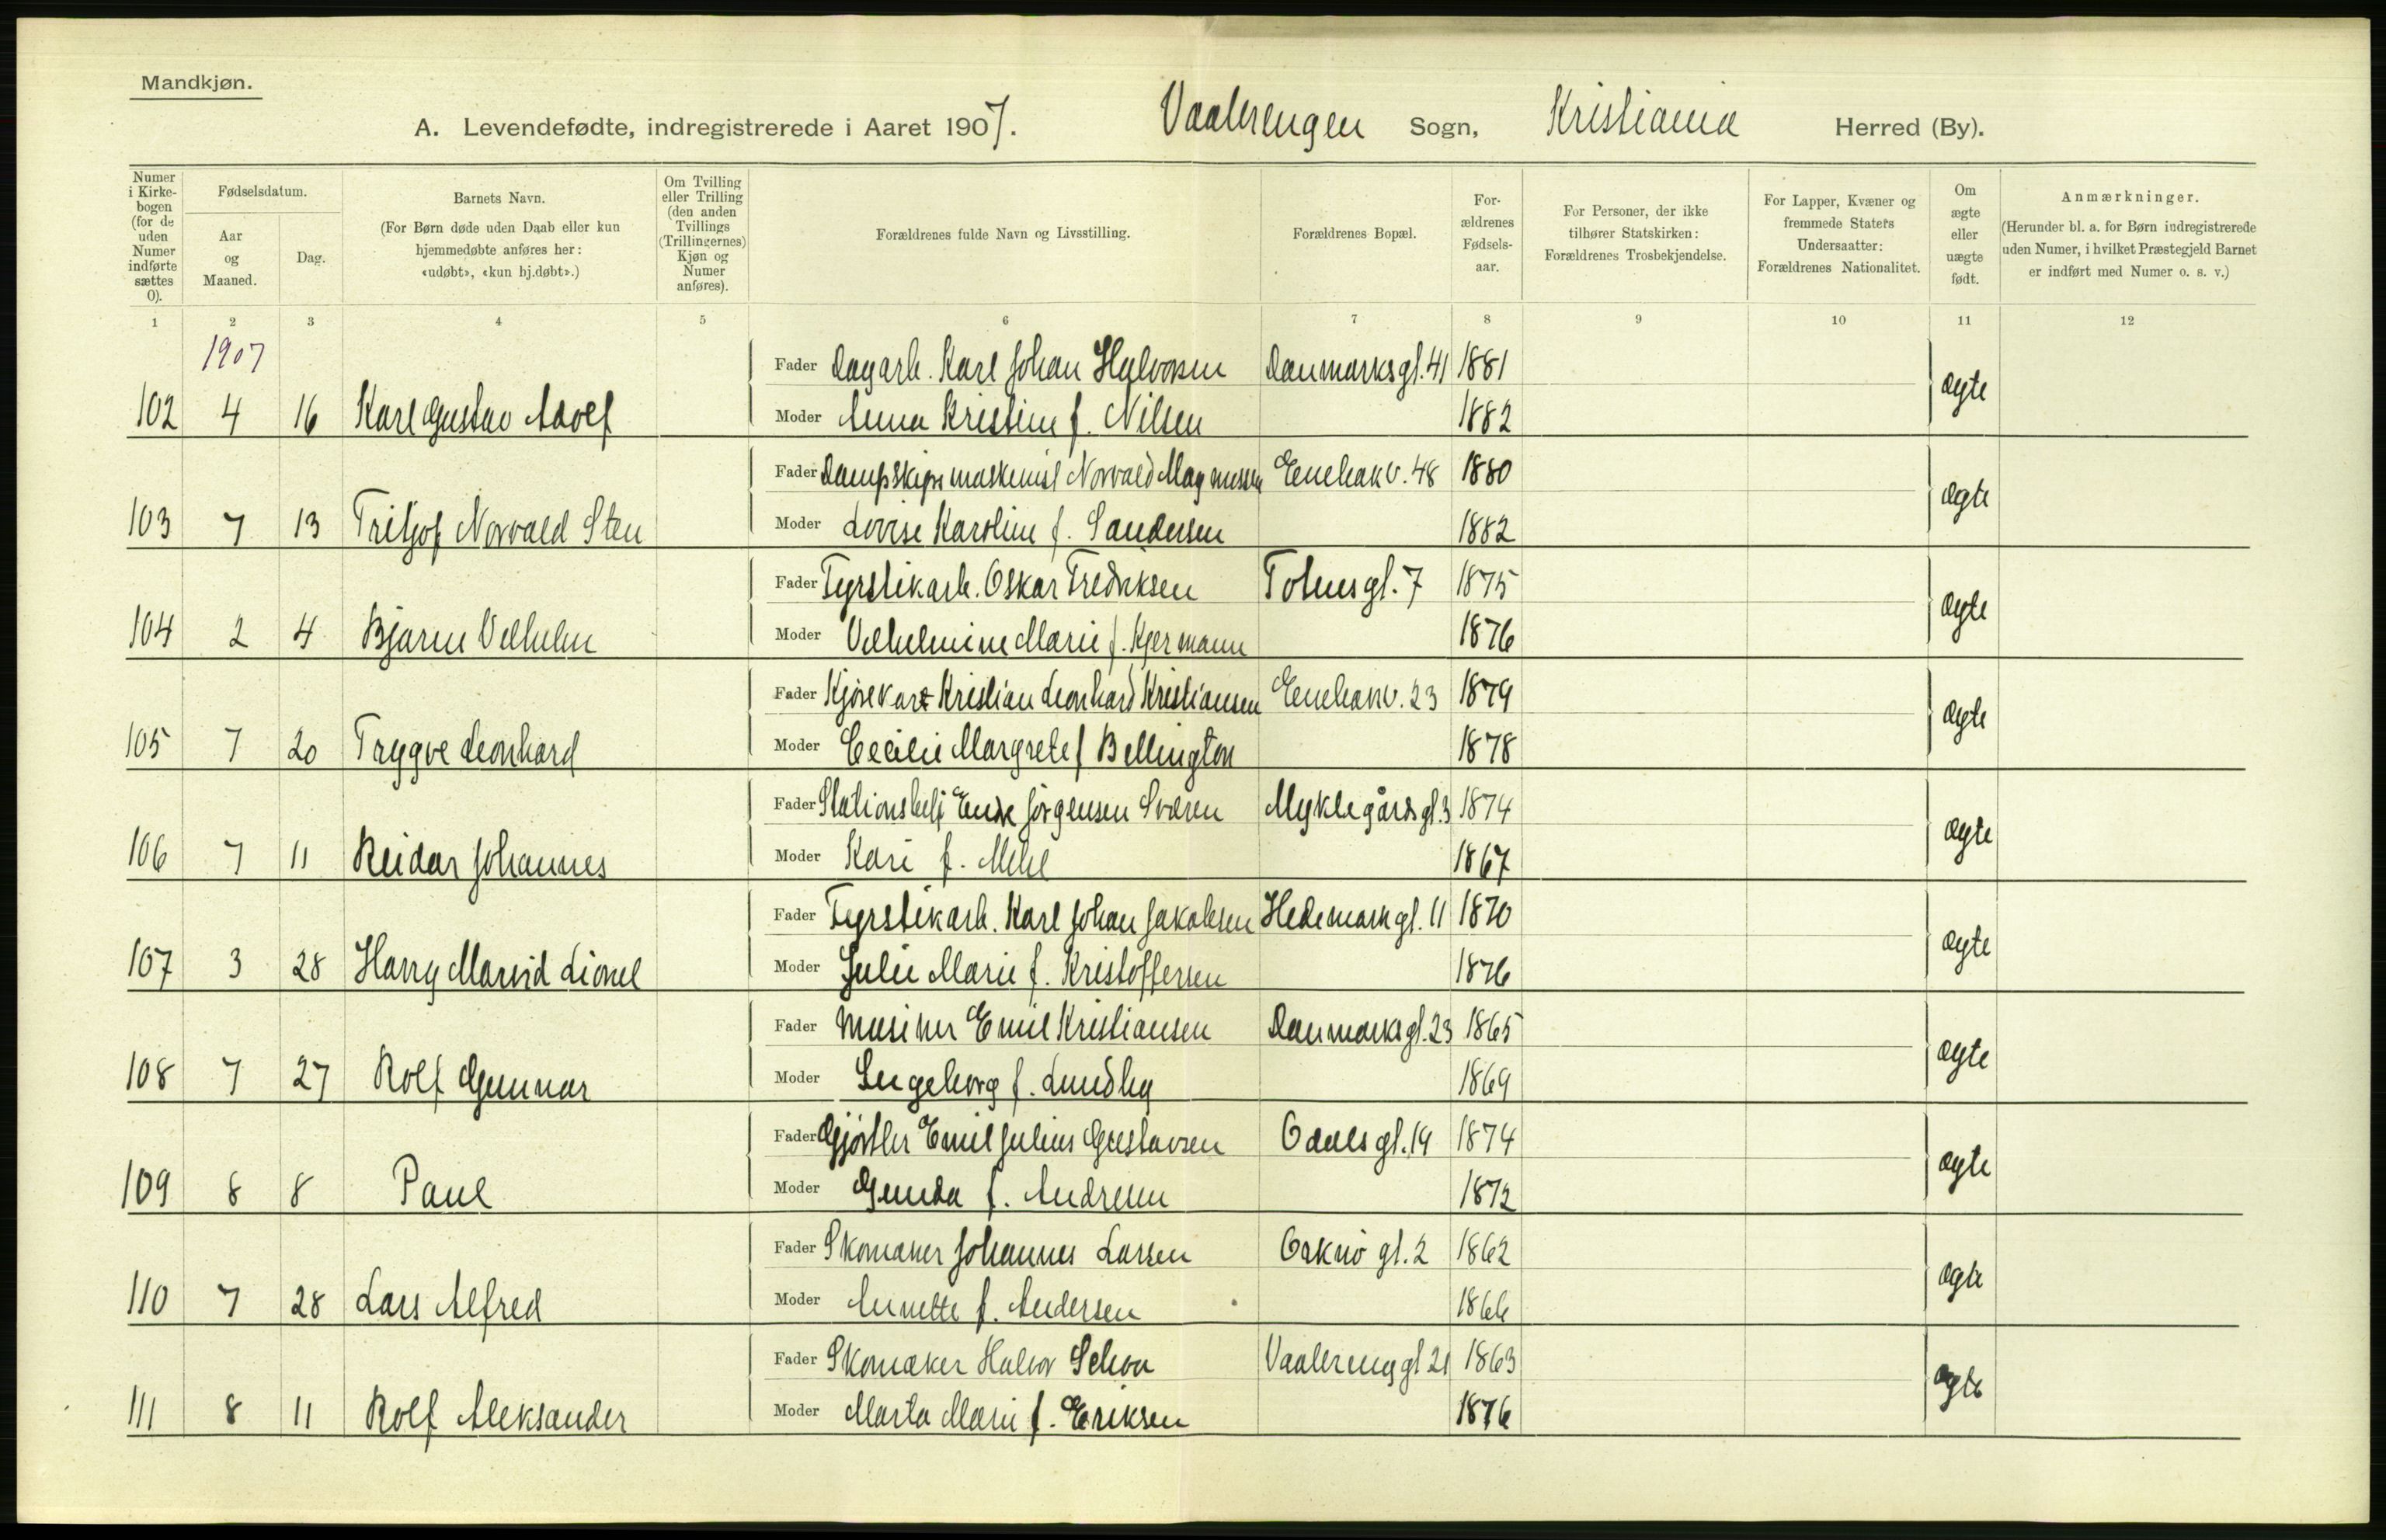 Mandkjøn.
A. Levendefødte, indregistrerede i Aaret 1907. Vaalerengen Sogn, Kristiania Herred (By).
Numer i Kirkebogen (for de uden Numer indførte sættes 0).
Fødselsdatum.
Aar og Maaned.
Dag.
Barnets Navn.
(For Børn døde uden Daab eller kun hjemmedøbte anføres her: «udøbt», «kun hj.døbt».)
Om Tvilling eller Trilling (den anden Tvillings (Trillingernes) Kjøn og Numer anføres).
Forældrenes fulde Navn og Livsstilling.
Forældrenes Bopæl.
Forældrenes Fødselsaar.
For Personer, der ikke tilhører Statskirken: Forældrenes Trosbekjendelse.
For Lapper, Kvæner og fremmede Staters Undersaatter: Forældrenes Nationalitet.
Om ægte eller uægte født.
Anmærkninger.
(Herunder bl. a. for Børn indregistrerede uden Numer, i hvilket Præstegjeld Barnet er indført med Numer o. s. v.)
1 2 3 4 5 6 7 8 9 10 11 12
1907
Fader Dagarb. Karl Johan Halvorsen Danmarksgt. 41 1881
102 4 16 Karl Gustav Adolf Moder Anna Kristine f. Nilsen 1882 ægte
Fader Dampskipsmaskinist Norvald Magnussen Enebakv. 48 1880
103 7 13 Fritjof Norvald Sten Moder Lovise Karoline f. Sandersen 1882 ægte
Fader Fyrstikarb. Oskar Fredriksen Totensgt. 7 1875
104 2 4 Bjarne Vilhelm Moder Vilhelmine Marie f. Kjermann 1876 ægte
Fader Kristian Leonhard Kristiansen Enebakv. 23 1879
105 7 20 Trygve Leonhard Moder Cecilie Margrete f Bellington 1878 ægte
Fader Stationsbetj Jørgensen Sværen Myklegårdsgt. 3 1874
106 7 11 Reidar Johannes Moder Kari f. Mehl 1867 ægte
Fader Fyrstikarb. Karl Johan Jakobsen Hedemarkgt. 11 1870
107 3 28 Harry Marvid Lionel Moder Julie Marie f. Kristoffersen 1876 ægte
Fader Musiker Emil Kristiansen Danmarksgt. 23 1865
108 7 27 Rolf Gunnar Moder Ingeborg f. Lundby 1869 ægte
Fader Gjørtler Emil Julius Gustavsen Odalsgt. 19 1874
109 8 8 Paul Moder Gunda f. Andresen 1872 ægte
Fader Skomaker Johannes Larsen Orknøgt. 2 1862
110 7 28 Lars Alfred Moder Annette f. Andersen 1866 ægte
Fader Skomaker Halvor Schou Vaalerenggt 21 1863
111 8 11 Rolf Aleksander Moder Marta Marie f. Eriksen 1876 ægte